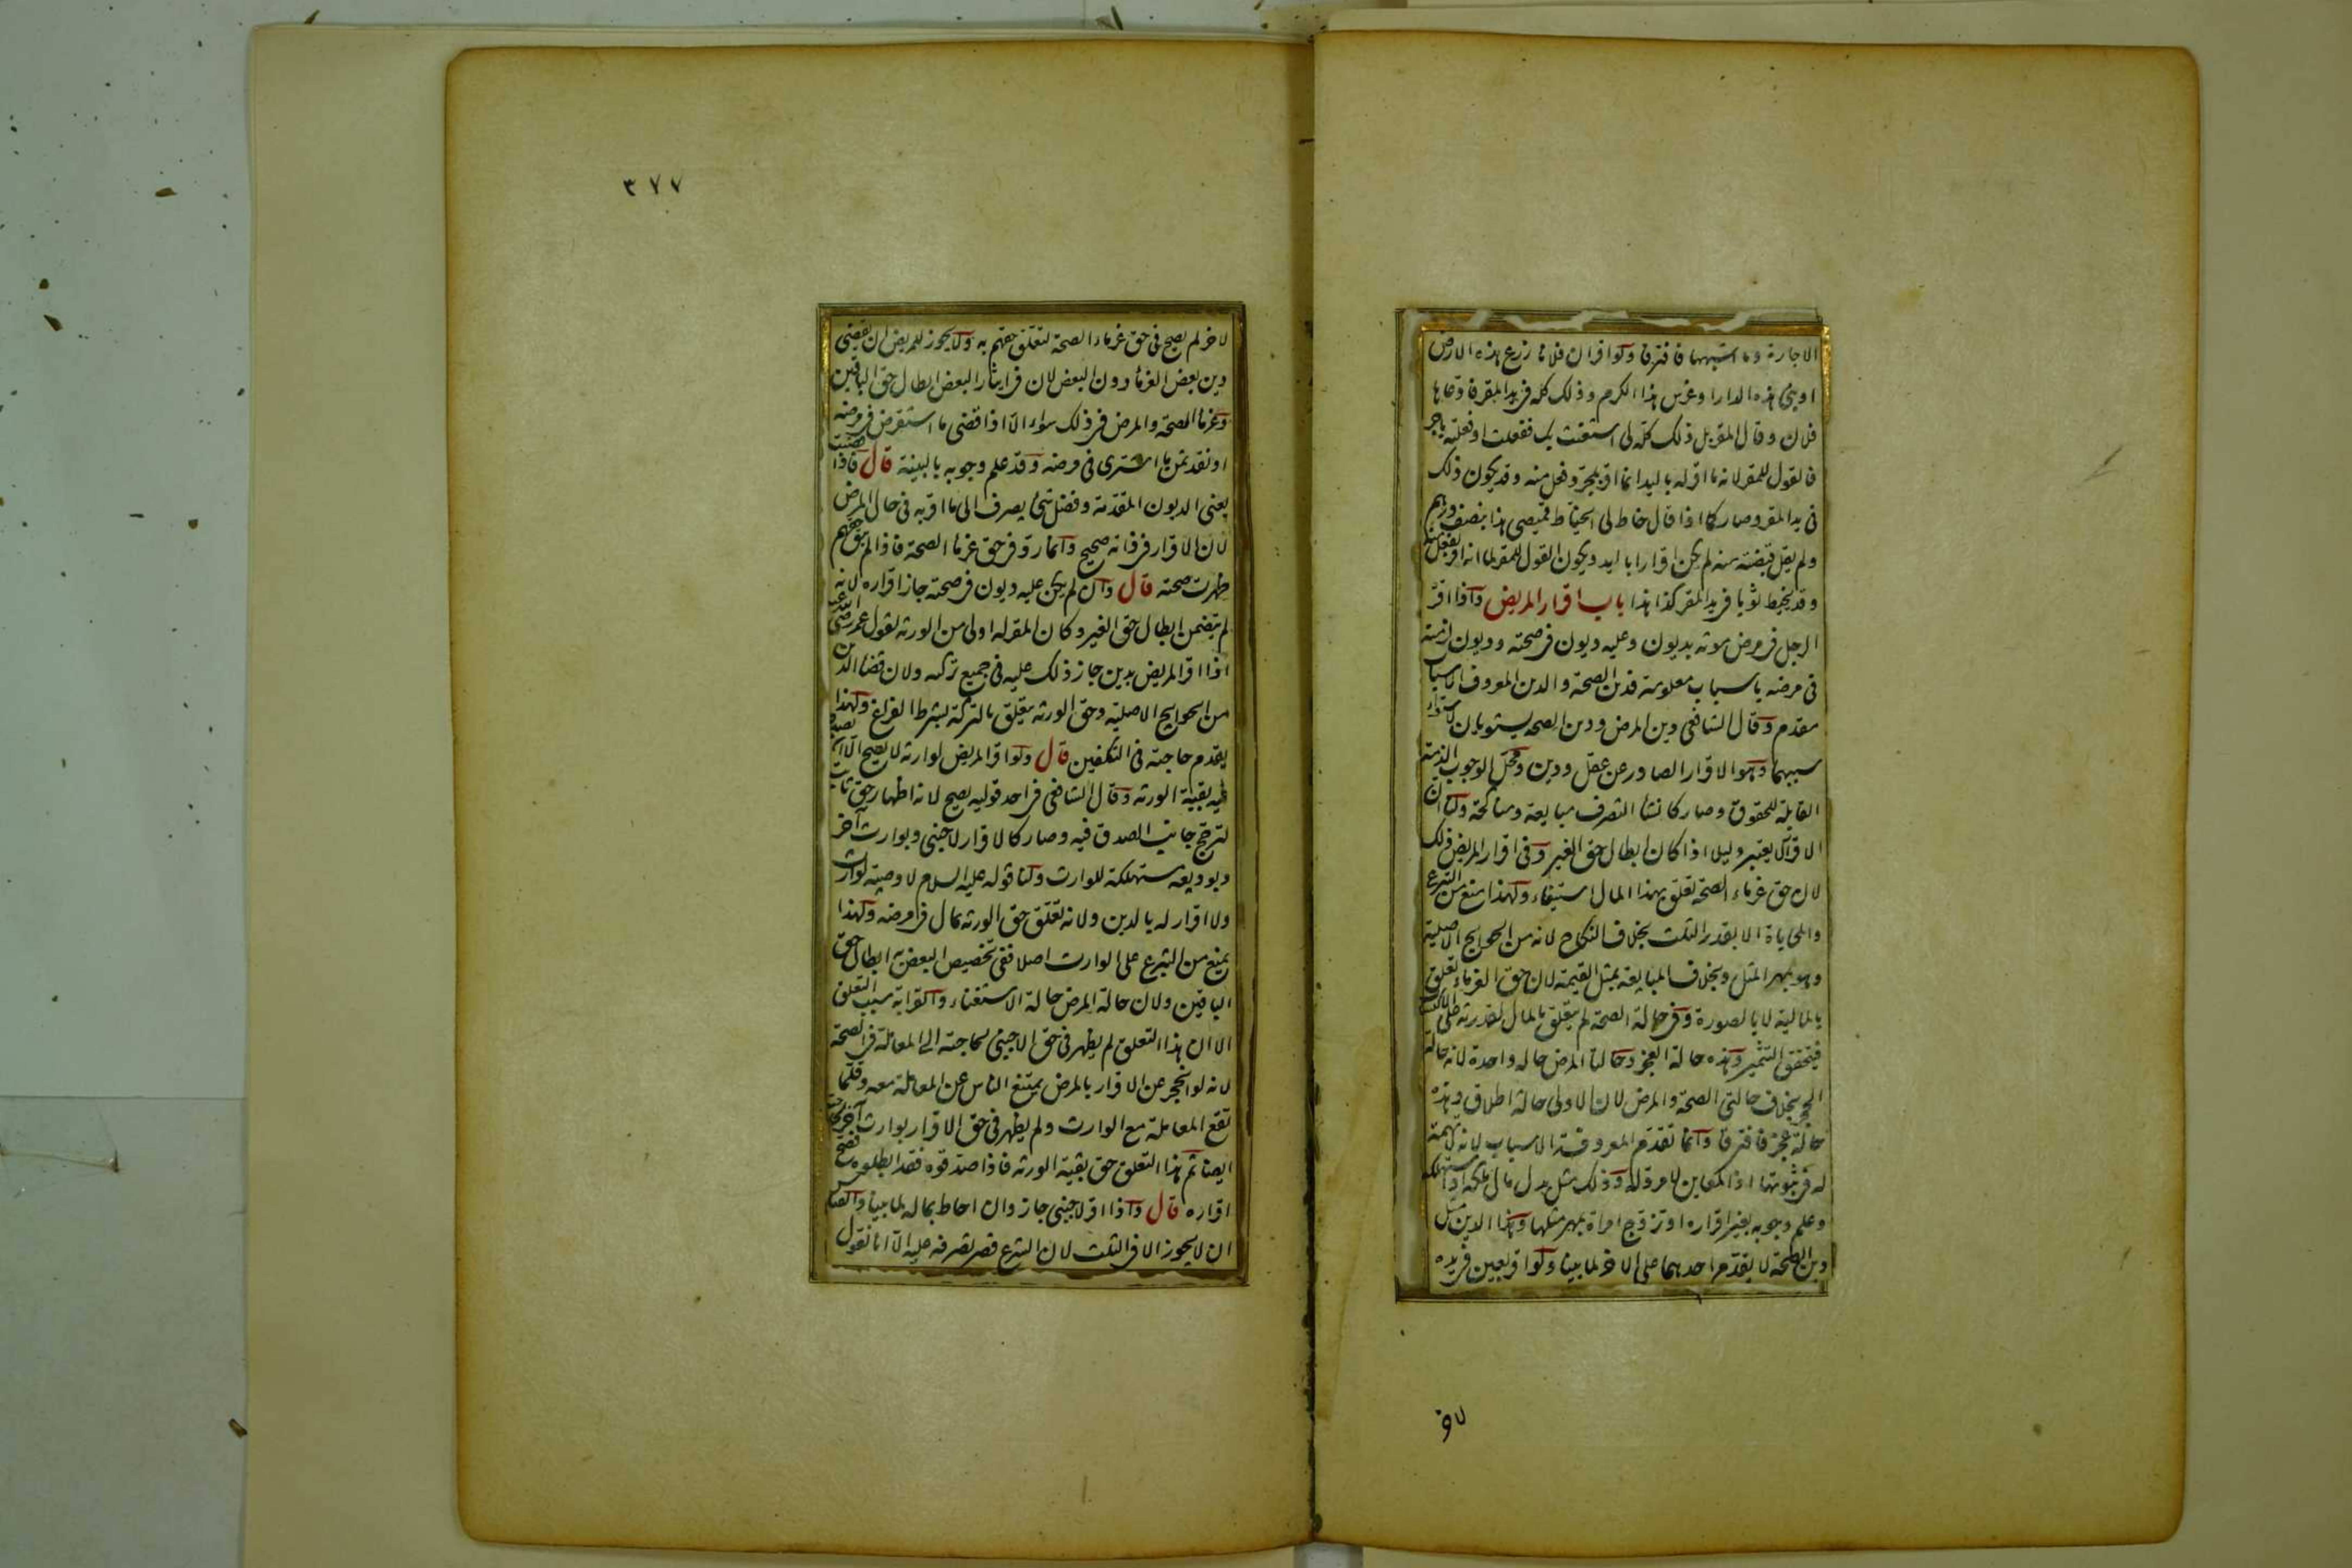 الاجارة وما اشبهها فافترقا ولو اقر ان فلانا زرع هذه الارض
او بنى هذه الدار او غرس هذا الكرم وذلك كله فى يد المقر فادعاها
فلان وقال المقر بل ذلك كله لى استعنت بك ففعلت او فعلته باجر
فالقول للمقر لانه ما اقر له باليد انما اقر بمجرد فعل منه وقد يكون ذلك
فى يد المقر وصار كما اذا قال خاط لى الخياط قميصى هذا بنصف درهم
ولم يقل قبضته منه لم يكن اقرارا باليد ويكون القول للمقر لما انه اقر بفعل منه
وقد يخيط ثوبا فى يد المقر كذا هذا باب اقرار المريض واذا اقر
الرجل فى مرض موته بديون وعليه ديون فى صحته وديون لزمته
فى مرضه باسباب معلومة فدين الصحة والدين المعروف الاسباب
مقدم وقال الشافعى دين المرض ودين الصحة يستويان لاستواء
سببهما وهو الاقرار الصادر عن عقل ودين ومحل الوجوب الذمة
القابلة للحقوق وصار كانشاء التصرف مبايعة ومناكحة ولنا ان
الاقرار لا يعتبر دليلا اذا كان ابطال حق الغير وفى اقرار المريض ذلك
لان حق غرماء الصحة تعلق بهذا المال استيفاء ولهذا منع من التبرع
والمحاباة الا بقدر الثلث بخلاف النكاح لانه من الحوايج الاصلية
وهو بمهر المثل وبخلاف المبايعة بمثل القيمة لان حق الغرماء تعلق
بالمالية لا بالصورة وفى حالة الصحة لم يتعلق بالمال لقدرته على الاكتساب
فيتحقق التثمير وهذه حالة العجز وحالتا المرض حالة واحدة لانه حالة
الحجر بخلاف حالتى الصحة والمرض لان الاولى حالة اطلاق وهذه
حالة عجز فافترقا وانما تقدم المعروفة الاسباب لانه لا تهمة
له فى ثبوتها اذ المعاين لا مرد له وذلك مثل بدل مال ملكه او استهلكه
وعلم وجوبه بغير اقراره او تزوج امراة بمهر مثلها وهذا الدين مثل
دين الصحة لا يقدم احدهما على الاخر لما بينا ولو اقر بعين فى يده
لاخر
٣٧٧
لاخر لم يصح فى حق غرماء الصحة لتعلق حقهم به ولا يجوز للمريض ان يقضى
دين بعض الغرماء دون البعض لان فى ايثار البعض ابطال حق الباقين
وغرماء الصحة والمرض فى ذلك سواء الا اذا قضى ما استقرض فى مرضه
او نقد ثمن ما اشترى فى مرضه وقد علم وجوبه بالبينة قال فاذا قضيت
يعنى الديون المقدمة وفضل شئ يصرف الى ما اقر به فى حال المرض
لان الاقرار فى ذاته صحيح وانما رد فى حق غرماء الصحة فاذا لم يبق حقهم
ظهرت صحته قال وان لم يكن عليه ديون فى صحته جاز اقراره لانه
لم يتضمن ابطال حق الغير وكان المقر له اولى من الورثة لقول عمر رضى الله عنه
اذا اقر المريض بدين جاز ذلك عليه فى جميع تركته ولان قضاء الدين
من الحوايج الاصلية وحق الورثة يتعلق بالتركة بشرط الفراغ ولهذا
يقدم حاجته فى التكفين قال ولو اقر المريض لوارثه لا يصح الا ان يصدقه
فيه بقية الورثة وقال الشافعى فى احد قوليه يصح لانه اظهار حق ثابت
لترجح جانب الصدق فيه وصار كالاقرار لاجنبى وبوارث آخر
وبوديعة مستهلكة للوارث ولنا قوله عليه السلام لا وصية لوارث
ولا اقرار له بالدين ولانه تعلق حق الورثة بمال فى مرضه ولهذا
يمنع من التبرع على الوارث اصلا ففى تخصيص البعض به ابطال حق
الباقين ولان حالة المرض حالة الاستغناء والقرابة سبب التعلق
الا ان هذا التعلق لم يظهر فى حق الاجنبى لحاجته الى المعاملة فى الصحة
لانه لو انحجر عن الاقرار بالمرض يمتنع الناس عن المعاملة معه وقلما
تقع المعاملة مع الوارث ولم يظهر فى حق الاقرار بوارث آخر لحاجته
ايضا ثم هذا التعلق حق بقية الورثة فاذا صدقوه فقد ابطلوه فيصح
اقراره قال واذا اقر لاجنبى جاز وان احاط بماله لما بينا والقياس
ان لا يجوز الا فى الثلث لان الشرع قصر تصرفه عليه الا انا نقول